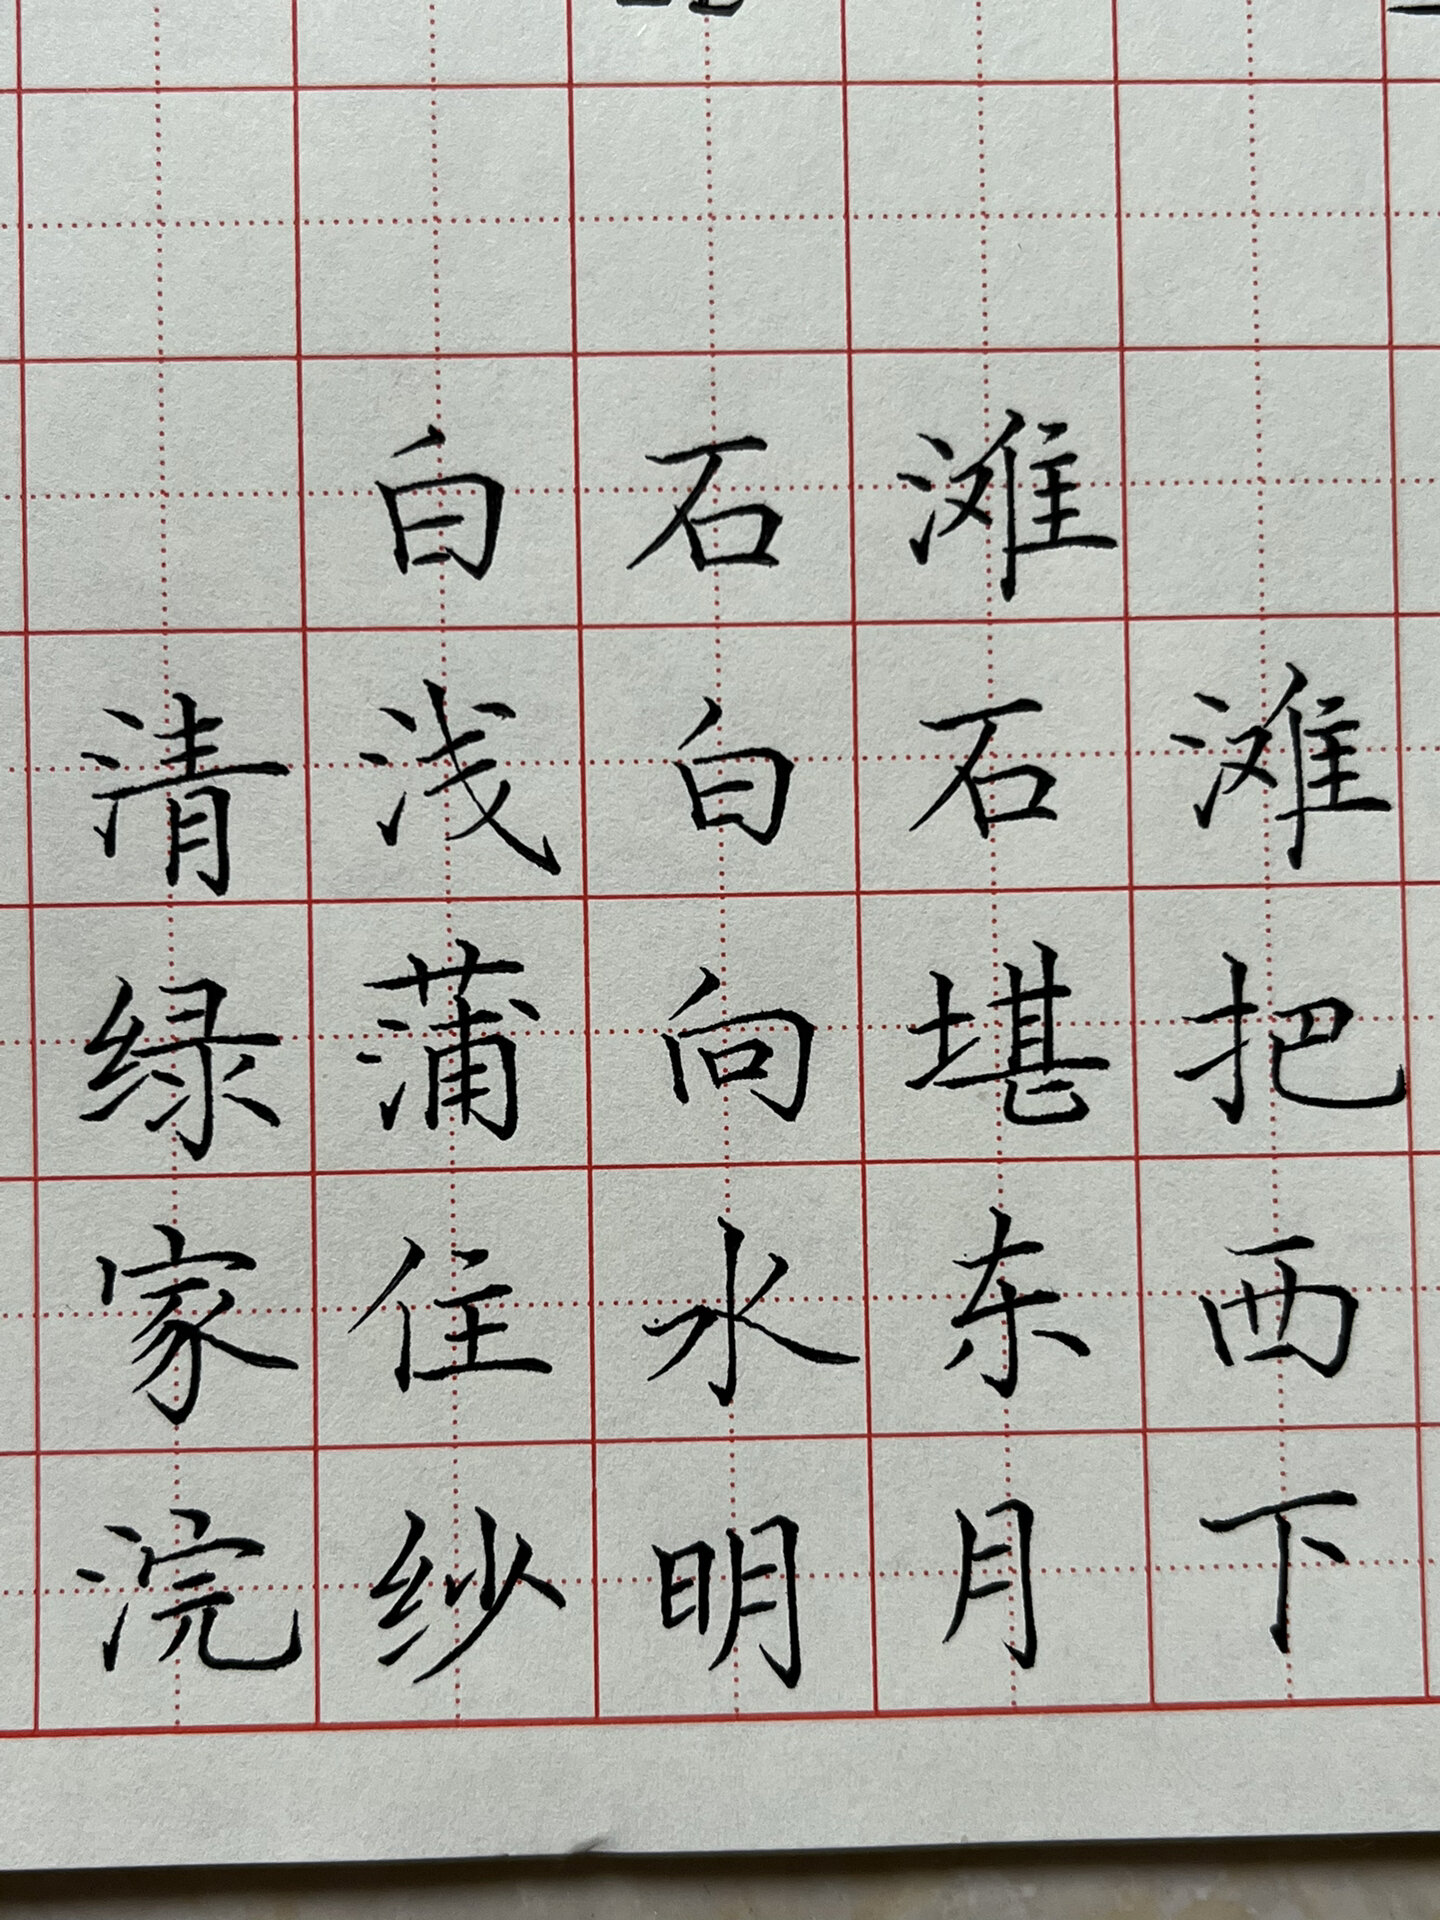 白石滩
清浅白石滩
绿蒲向堪把
家住水东西
浣纱明月下